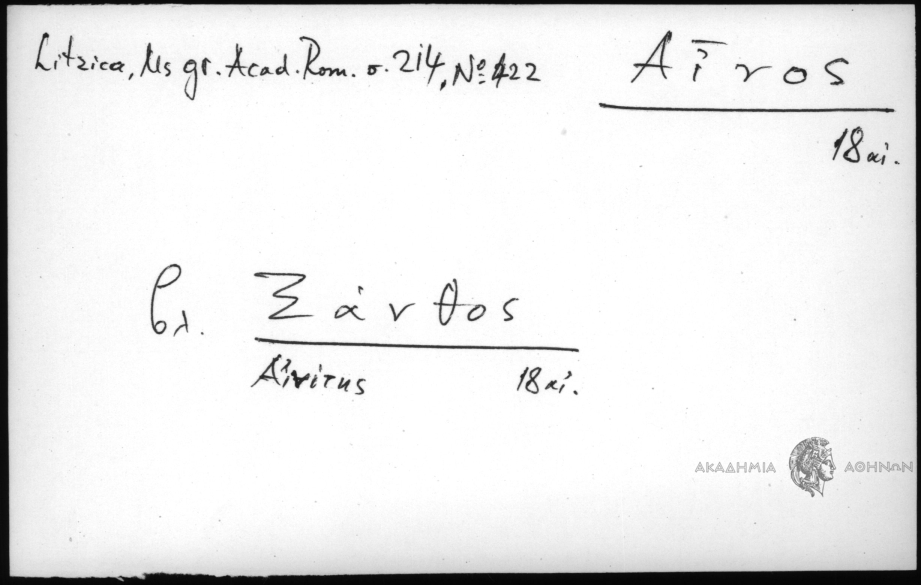 Litzica, Ms gr. Acad. Rom. σ. 214, Nº 422
Αἶνος
18 αἰ.
βλ. Ξάνθος
Αἰνίτης 18 αἰ.
ΑΚΑΔΗΜΙΑ ΑΘΗΝΩΝ